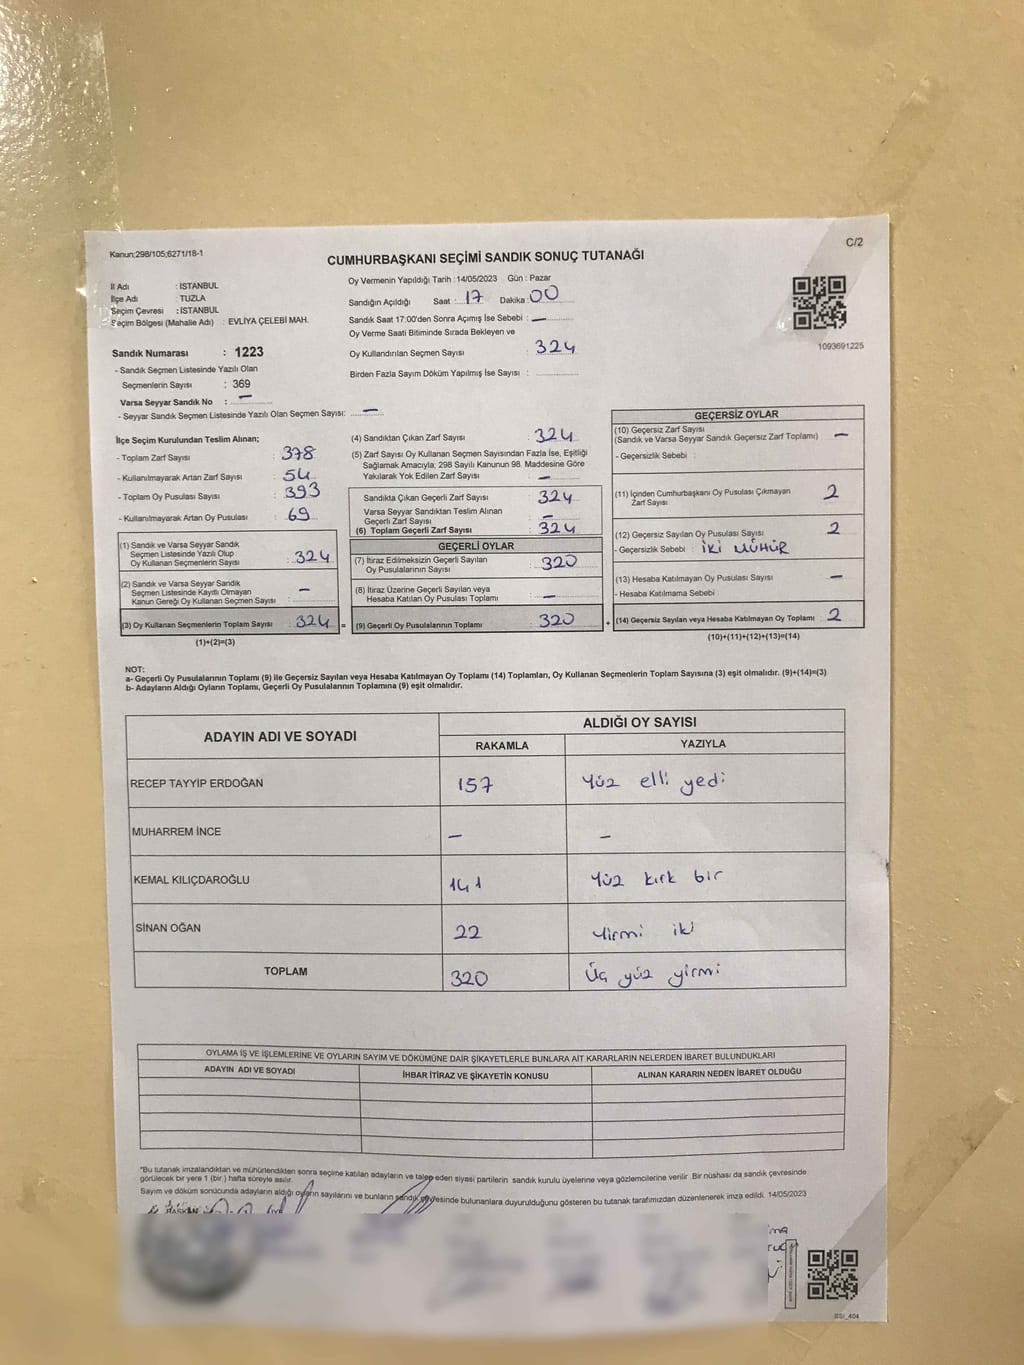 Kanun;298/105;6271/18-1
C/2
CUMHURBAŞKANI SEÇİMİ SANDIK SONUÇ TUTANAĞI
İl Adı : İSTANBUL
İlçe Adı : TUZLA
Seçim Çevresi : İSTANBUL
Seçim Bölgesi (Mahalle Adı) : EVLİYA ÇELEBİ MAH.
Oy Vermenin Yapıldığı Tarih : 14/05/2023 Gün : Pazar
Sandığın Açıldığı Saat : 17 Dakika : 00
Sandık Saat 17:00'den Sonra Açımış İse Sebebi : —
Oy Verme Saati Bitiminde Sırada Bekleyen ve
Oy Kullandırılan Seçmen Sayısı : 324
Birden Fazla Sayım Döküm Yapılmış İse Sayısı :
1093691225
Sandık Numarası : 1223
- Sandık Seçmen Listesinde Yazılı Olan
Seçmenlerin Sayısı : 369
Varsa Seyyar Sandık No : —
- Seyyar Sandık Seçmen Listesinde Yazılı Olan Seçmen Sayısı: —
İlçe Seçim Kurulundan Teslim Alınan;
- Toplam Zarf Sayısı : 378
- Kullanılmayarak Artan Zarf Sayısı : 54
- Toplam Oy Pusulası Sayısı : 393
- Kullanılmayarak Artan Oy Pusulası : 69
(1) Sandık ve Varsa Seyyar Sandık
Seçmen Listesinde Yazılı Olup
Oy Kullanan Seçmenlerin Sayısı : 324
(2) Sandık ve Varsa Seyyar Sandık
Seçmen Listesinde Kayıtlı Olmayan
Kanun Gereği Oy Kullanan Seçmen Sayısı : —
(3) Oy Kullanan Seçmenlerin Toplam Sayısı : 324 =
(1)+(2)=(3)
(4) Sandıktan Çıkan Zarf Sayısı : 324
(5) Zarf Sayısı Oy Kullanan Seçmen Sayısından Fazla İse, Eşitliği
Sağlamak Amacıyla; 298 Sayılı Kanunun 98. Maddesine Göre
Yakılarak Yok Edilen Zarf Sayısı : —
Sandıkta Çıkan Geçerli Zarf Sayısı : 324
Varsa Seyyar Sandıktan Teslim Alınan
Geçerli Zarf Sayısı : —
(6) Toplam Geçerli Zarf Sayısı : 324
GEÇERLİ OYLAR
(7) İtiraz Edilmeksizin Geçerli Sayılan
Oy Pusulalarının Sayısı : 320
(8) İtiraz Üzerine Geçerli Sayılan veya
Hesaba Katılan Oy Pusulası Toplamı : —
(9) Geçerli Oy Pusulalarının Toplamı : 320 +
GEÇERSİZ OYLAR
(10) Geçersiz Zarf Sayısı
(Sandık ve Varsa Seyyar Sandık Geçersiz Zarf Toplamı) —
- Geçersizlik Sebebi :
(11) İçinden Cumhurbaşkanı Oy Pusulası Çıkmayan
Zarf Sayısı 2
(12) Geçersiz Sayılan Oy Pusulası Sayısı 2
- Geçersizlik Sebebi : İKİ MÜHÜR
(13) Hesaba Katılmayan Oy Pusulası Sayısı —
- Hesaba Katılmama Sebebi
(14) Geçersiz Sayılan veya Hesaba Katılmayan Oy Toplamı 2
(10)+(11)+(12)+(13)=(14)
NOT:
a- Geçerli Oy Pusulalarının Toplamı (9) ile Geçersiz Sayılan veya Hesaba Katılmayan Oy Toplamı (14) Toplamları, Oy Kullanan Seçmenlerin Toplam Sayısına (3) eşit olmalıdır. (9)+(14)=(3)
b- Adayların Aldığı Oyların Toplamı, Geçerli Oy Pusulalarının Toplamına (9) eşit olmalıdır.
ADAYIN ADI VE SOYADI
ALDIĞI OY SAYISI
RAKAMLA YAZIYLA
RECEP TAYYİP ERDOĞAN 157 Yüz elli yedi
MUHARREM İNCE — —
KEMAL KILIÇDAROĞLU 141 Yüz kırk bir
SİNAN OĞAN 22 Yirmi iki
TOPLAM 320 Üç yüz yirmi
OYLAMA İŞ VE İŞLEMLERİNE VE OYLARIN SAYIM VE DÖKÜMÜNE DAİR ŞİKAYETLERLE BUNLARA AİT KARARLARIN NELERDEN İBARET BULUNDUKLARI
ADAYIN ADI VE SOYADI İHBAR İTİRAZ VE ŞİKAYETİN KONUSU ALINAN KARARIN NEDEN İBARET OLDUĞU
*Bu tutanak imzalandıktan ve mühürlendikten sonra seçime katılan adayların ve talep eden siyasi partilerin sandık kurulu üyelerine veya gözlemcilerine verilir. Bir nüshası da sandık çevresinde
görülecek bir yere 1 (bir ) hafta süreyle asılır.
Sayım ve döküm sonucunda adayların aldığı oyların sayılarını ve bunların sandık çevresinde bulunanlara duyurulduğunu gösteren bu tutanak tarafımızdan düzenlenerek imza edildi. 14/05/2023